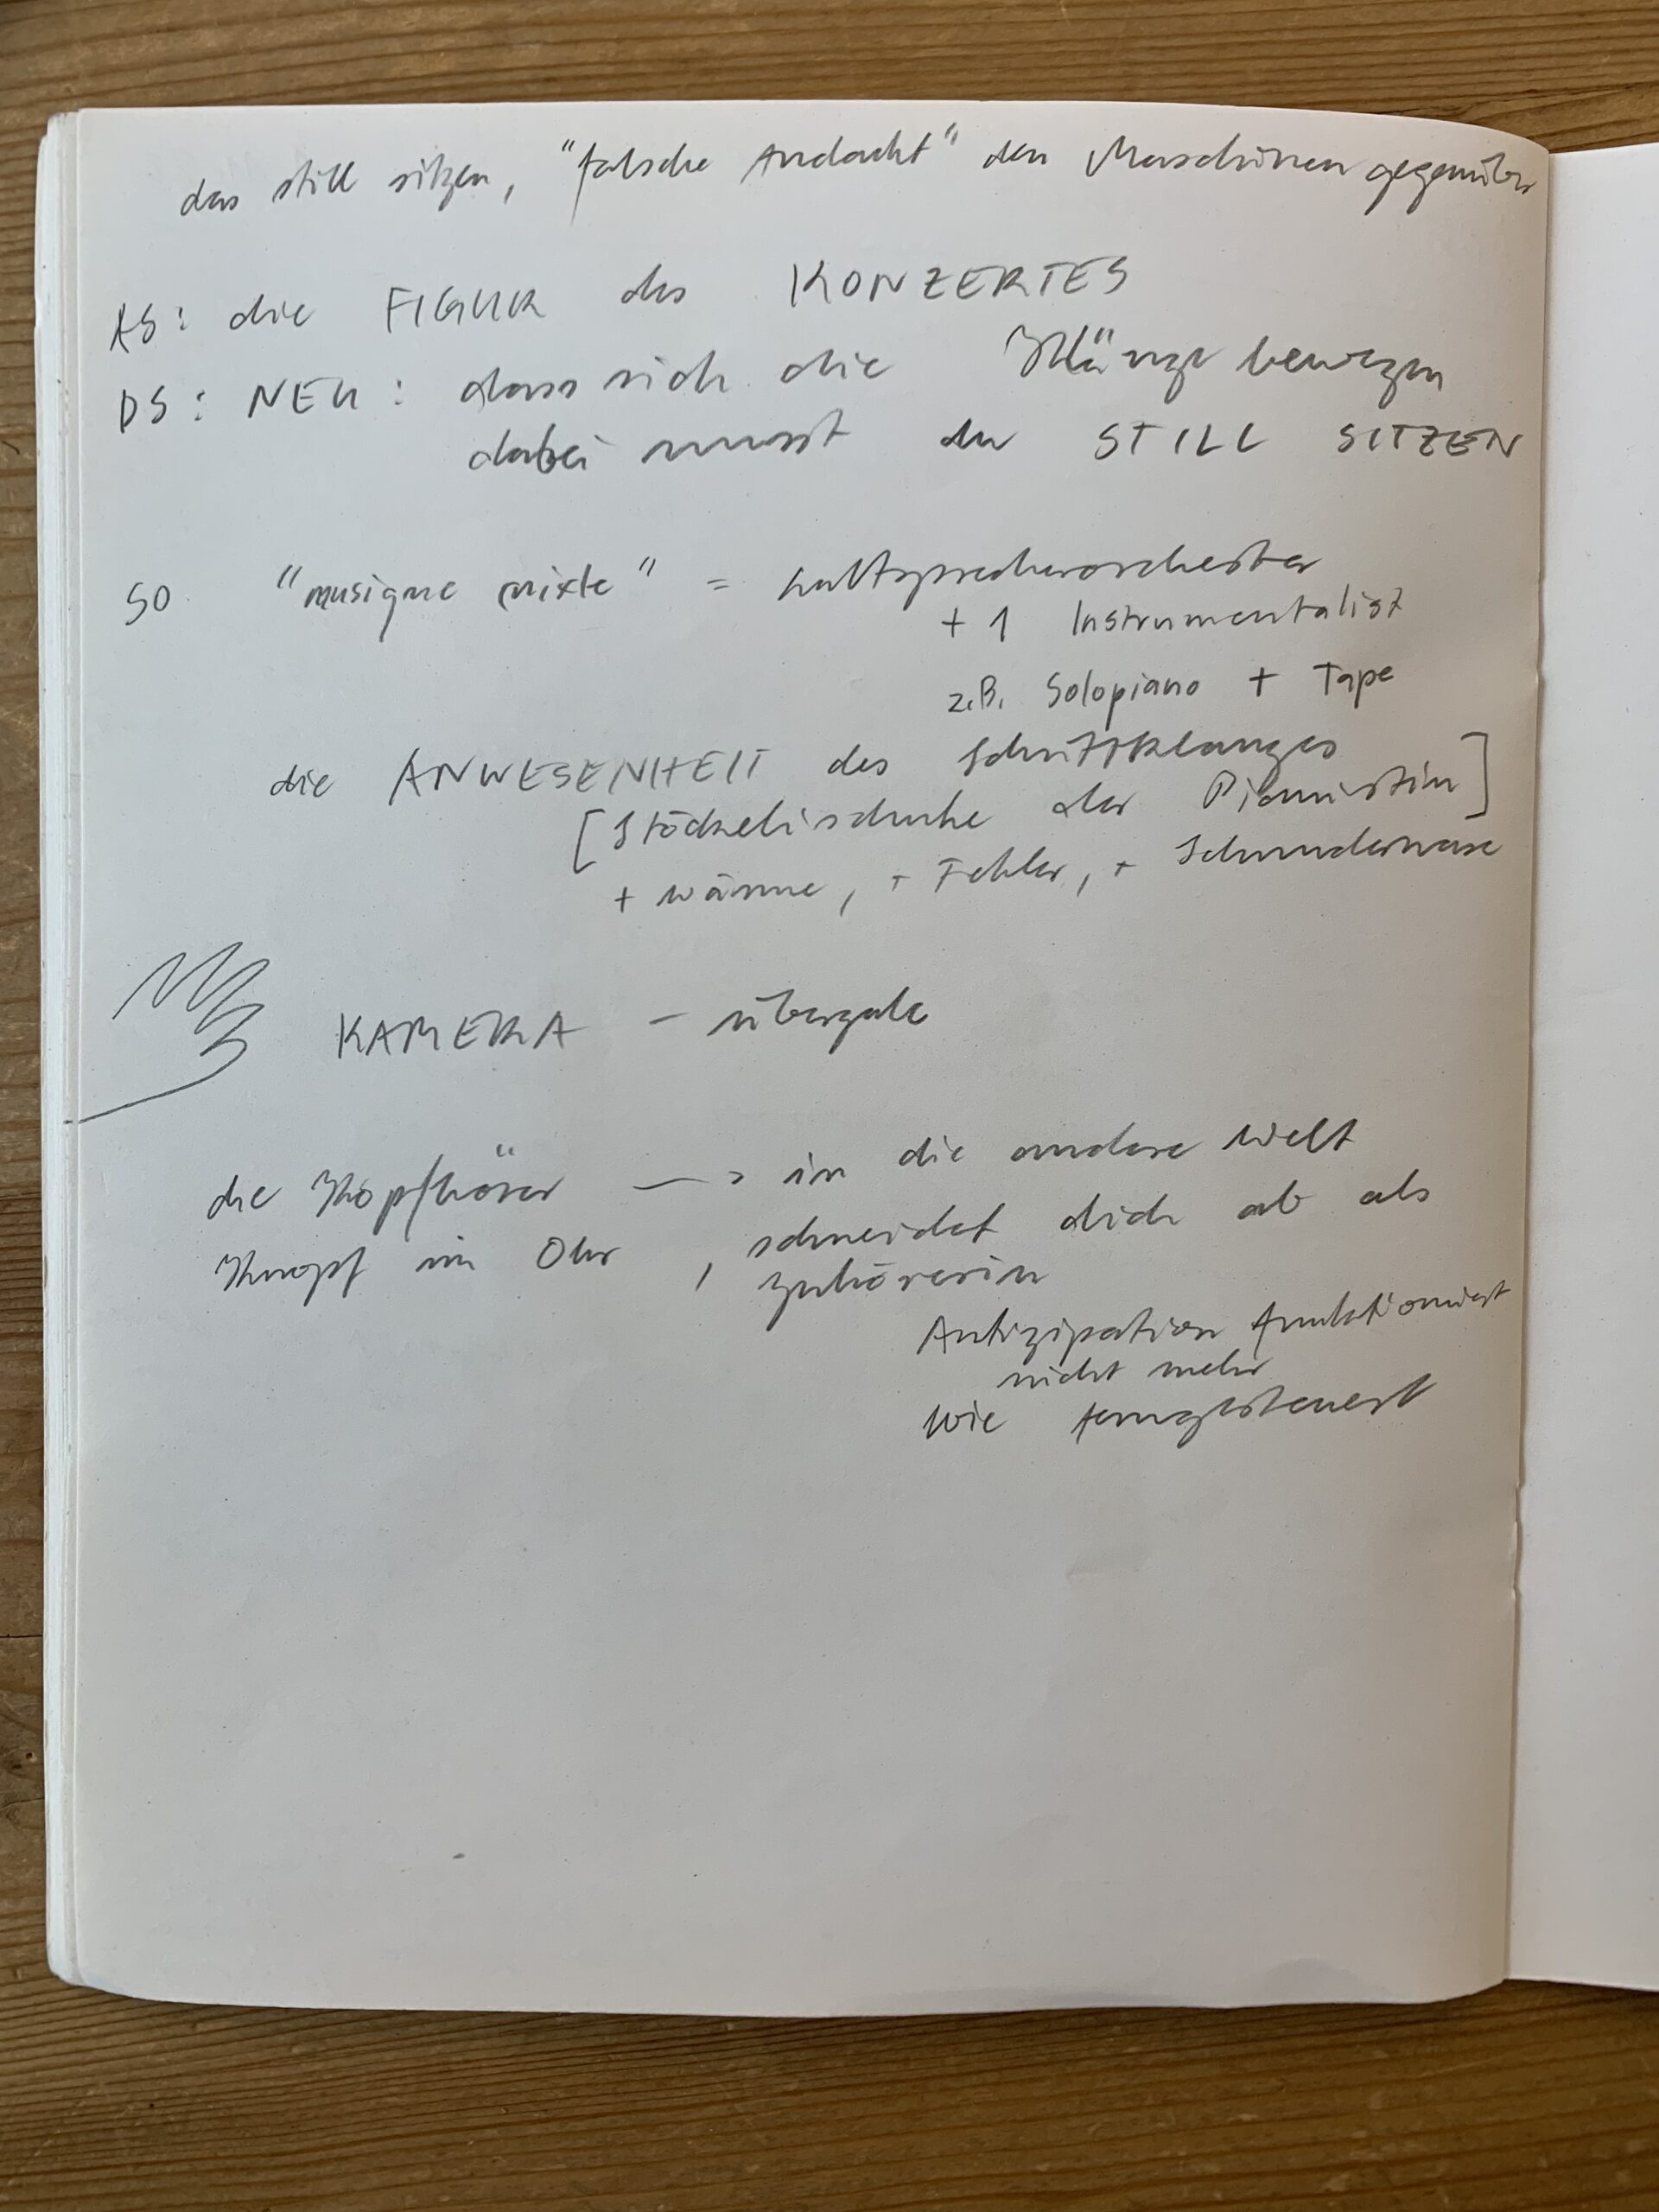 das still sitzen, "falsche Andacht" den Maschinen gegenüber
AS: die FIGUR des KONZERTES
DS: NEU: dass sich die Klänge bewegen
dabei musst du STILL SITZEN
SO "musique mixte" = Lautsprecherorchester
+ 1 Instrumentalist
z.B. Solopiano + Tape
die ANWESENHEIT des Schrittklanges
[Stöckelschuhe der Pianistin]
+ Wärme, + Fehler, +
KAMERA - übergabe
die Kopfhörer —> in die andere Welt
Knopf im Ohr , schneidet dich ab als
Zuhörerin
Antizipation funktioniert
nicht mehr
wie ferngesteuert